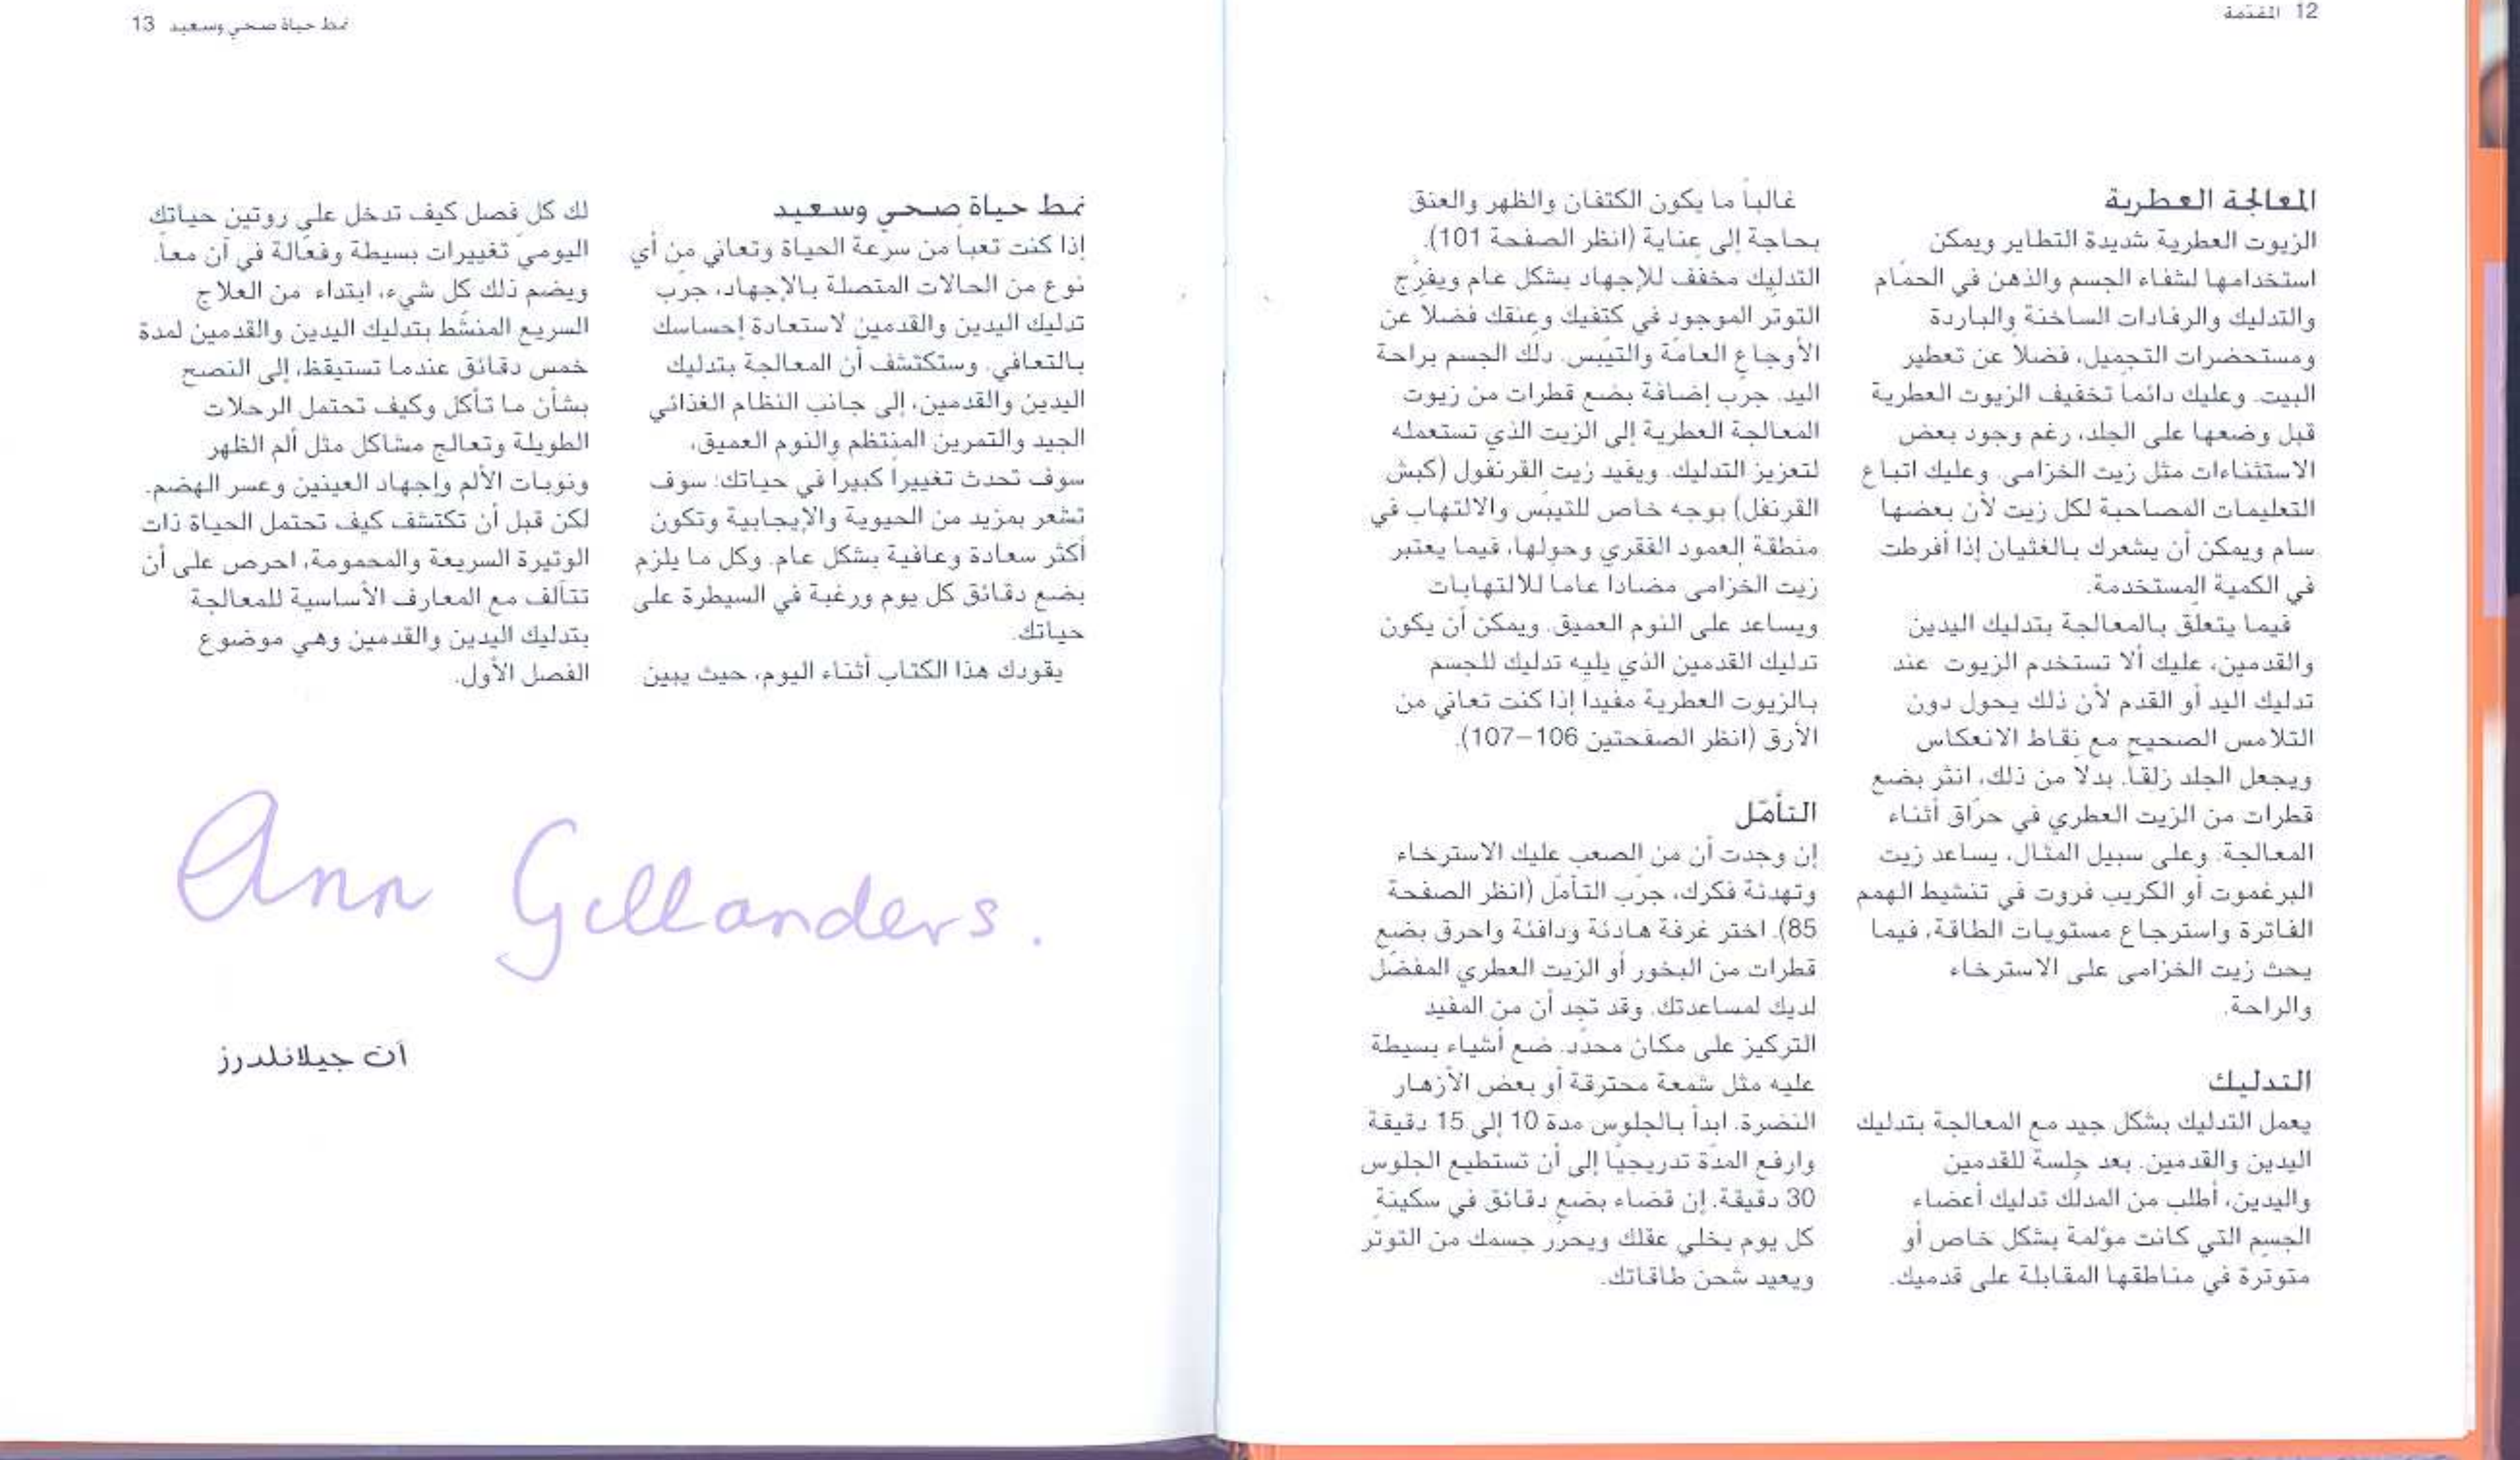 12 المقدمة
المعالجة العطرية
الزيوت العطرية شديدة التطاير ويمكن
استخدامها لشفاء الجسم والذهن في الحمّام
والتدليك والرفادات الساخنة والباردة
ومستحضرات التجميل، فضلاً عن تعطير
البيت. وعليك دائماً تخفيف الزيوت العطرية
قبل وضعها على الجلد، رغم وجود بعض
الاستثناءات مثل زيت الخزامى. وعليك اتباع
التعليمات المصاحبة لكل زيت لأن بعضها
سام ويمكن أن يشعرك بالغثيان إذا أفرطت
في الكمية المستخدمة.
فيما يتعلّق بالمعالجة بتدليك اليدين
والقدمين، عليك ألا تستخدم الزيوت عند
تدليك اليد أو القدم لأن ذلك يحول دون
التلامس الصحيح مع نقاط الانعكاس
ويجعل الجلد زلقاً. بدلاً من ذلك، انثر بضع
قطرات من الزيت العطري في حرّاق أثناء
المعالجة. وعلى سبيل المثال، يساعد زيت
البرغموت أو الكريب فروت في تنشيط الهمم
الفاترة واسترجاع مستويات الطاقة، فيما
يحث زيت الخزامى على الاسترخاء
والراحة.
التدليك
يعمل التدليك بشكل جيد مع المعالجة بتدليك
اليدين والقدمين. بعد جلسة للقدمين
واليدين، أطلب من المدلّك تدليك أعضاء
الجسم التي كانت مؤلمة بشكل خاص أو
متوترة في مناطقها المقابلة على قدميك.
غالباً ما يكون الكتفان والظهر والعنق
بحاجة إلى عناية (انظر الصفحة 101).
التدليك مخفف للإجهاد بشكل عام ويفرّج
التوتر الموجود في كتفيك وعنقك فضلاً عن
الأوجاع العامّة والتيبّس. دلّك الجسم براحة
اليد. جرب إضافة بضع قطرات من زيوت
المعالجة العطرية إلى الزيت الذي تستعمله
لتعزيز التدليك. ويفيد زيت القرنفول (كبش
القرنفل) بوجه خاص للتيبّس والالتهاب في
منطقة العمود الفقري وحولها، فيما يعتبر
زيت الخزامى مضاداً عاماً للالتهابات
ويساعد على النوم العميق. ويمكن أن يكون
تدليك القدمين الذي يليه تدليك للجسم
بالزيوت العطرية مفيداً إذا كنت تعاني من
الأرق (انظر الصفحتين 106–107).
التأمّل
إن وجدت أن من الصعب عليك الاسترخاء
وتهدئة فكرك، جرّب التأمّل (انظر الصفحة
85). اختر غرفة هادئة ودافئة واحرق بضع
قطرات من البخور أو الزيت العطري المفضّل
لديك لمساعدتك. وقد تجد أن من المفيد
التركيز على مكان محدّد. ضع أشياء بسيطة
عليه مثل شمعة محترقة أو بعض الأزهار
النضرة. ابدأ بالجلوس مدة 10 إلى 15 دقيقة
وارفع المدّة تدريجيّا إلى أن تستطيع الجلوس
30 دقيقة. إن قضاء بضع دقائق في سكينة
كل يوم يخلي عقلك ويحرّر جسمك من التوتّر
ويعيد شحن طاقاتك.
نمط حياة صحي وسعيد 13
نمط حياة صحي وسعيد
إذا كنت تعباً من سرعة الحياة وتعاني من أي
نوع من الحالات المتصلة بالإجهاد، جرّب
تدليك اليدين والقدمين لاستعادة إحساسك
بالتعافي. وستكتشف أن المعالجة بتدليك
اليدين والقدمين، إلى جانب النظام الغذائي
الجيد والتمرين المنتظم والنوم العميق،
سوف تحدث تغييراً كبيراً في حياتك: سوف
تشعر بمزيد من الحيوية والإيجابية وتكون
أكثر سعادة وعافية بشكل عام. وكل ما يلزم
بضع دقائق كل يوم ورغبة في السيطرة على
حياتك.
يقودك هذا الكتاب أثناء اليوم، حيث يبين
لك كل فصل كيف تدخل على روتين حياتك
اليوميّ تغييرات بسيطة وفعّالة في آن معاً.
ويضم ذلك كل شيء، ابتداء من العلاج
السريع المنشّط بتدليك اليدين والقدمين لمدة
خمس دقائق عندما تستيقظ، إلى النصح
بشأن ما تأكل وكيف تحتمل الرحلات
الطويلة وتعالج مشاكل مثل ألم الظهر
ونوبات الألم وإجهاد العينين وعسر الهضم.
لكن قبل أن تكتشف كيف تحتمل الحياة ذات
الوتيرة السريعة والمحمومة، احرص على أن
تتآلف مع المعارف الأساسية للمعالجة
بتدليك اليدين والقدمين وهي موضوع
الفصل الأول.
Ann Gillanders.
آن جيلانلدرز